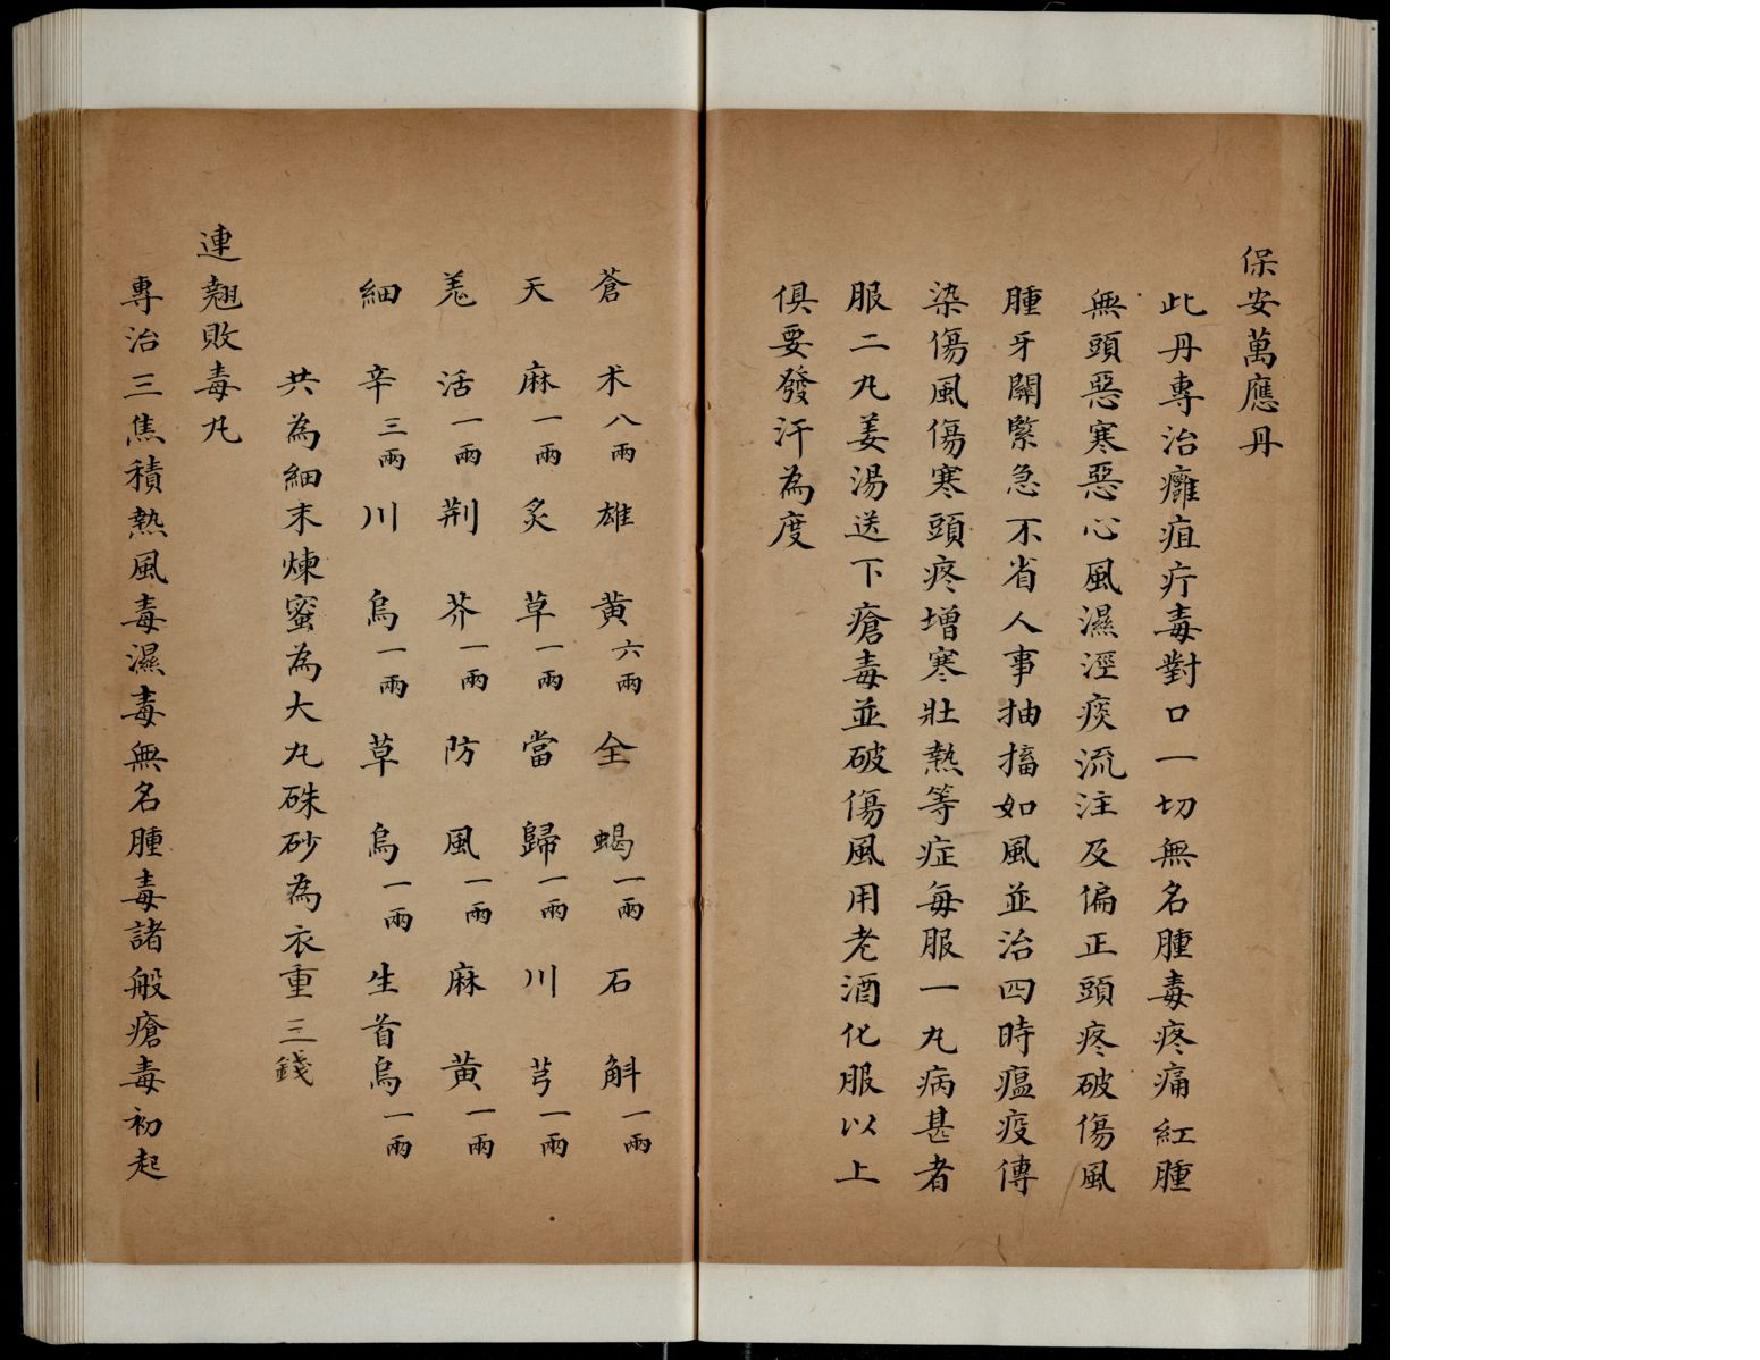 保安萬應丹
此丹專治癰疽疔毒對口一切無名腫毒疼痛紅腫
無頭惡寒惡心風濕溼痰流注及偏正頭疼破傷風
腫牙關緊急不省人事抽搐如風並治四時瘟疫傳
染傷風傷寒頭疼增寒壯熱等症每服一丸病甚者
服二丸姜湯送下瘡毒並破傷風用老酒化服以上
俱要發汗為度
蒼朮八兩雄黃六兩全蝎一兩石斛一兩
天麻一兩炙草一兩當歸一兩川芎一兩
羗活一兩荆芥一兩防風一兩麻黃一兩
細辛三兩川烏一兩草烏一兩生首烏一兩
共為細末煉蜜為大丸硃砂為衣重三錢
連翹敗毒丸
專治三焦積熱風毒濕毒無名腫毒諸般瘡毒初起